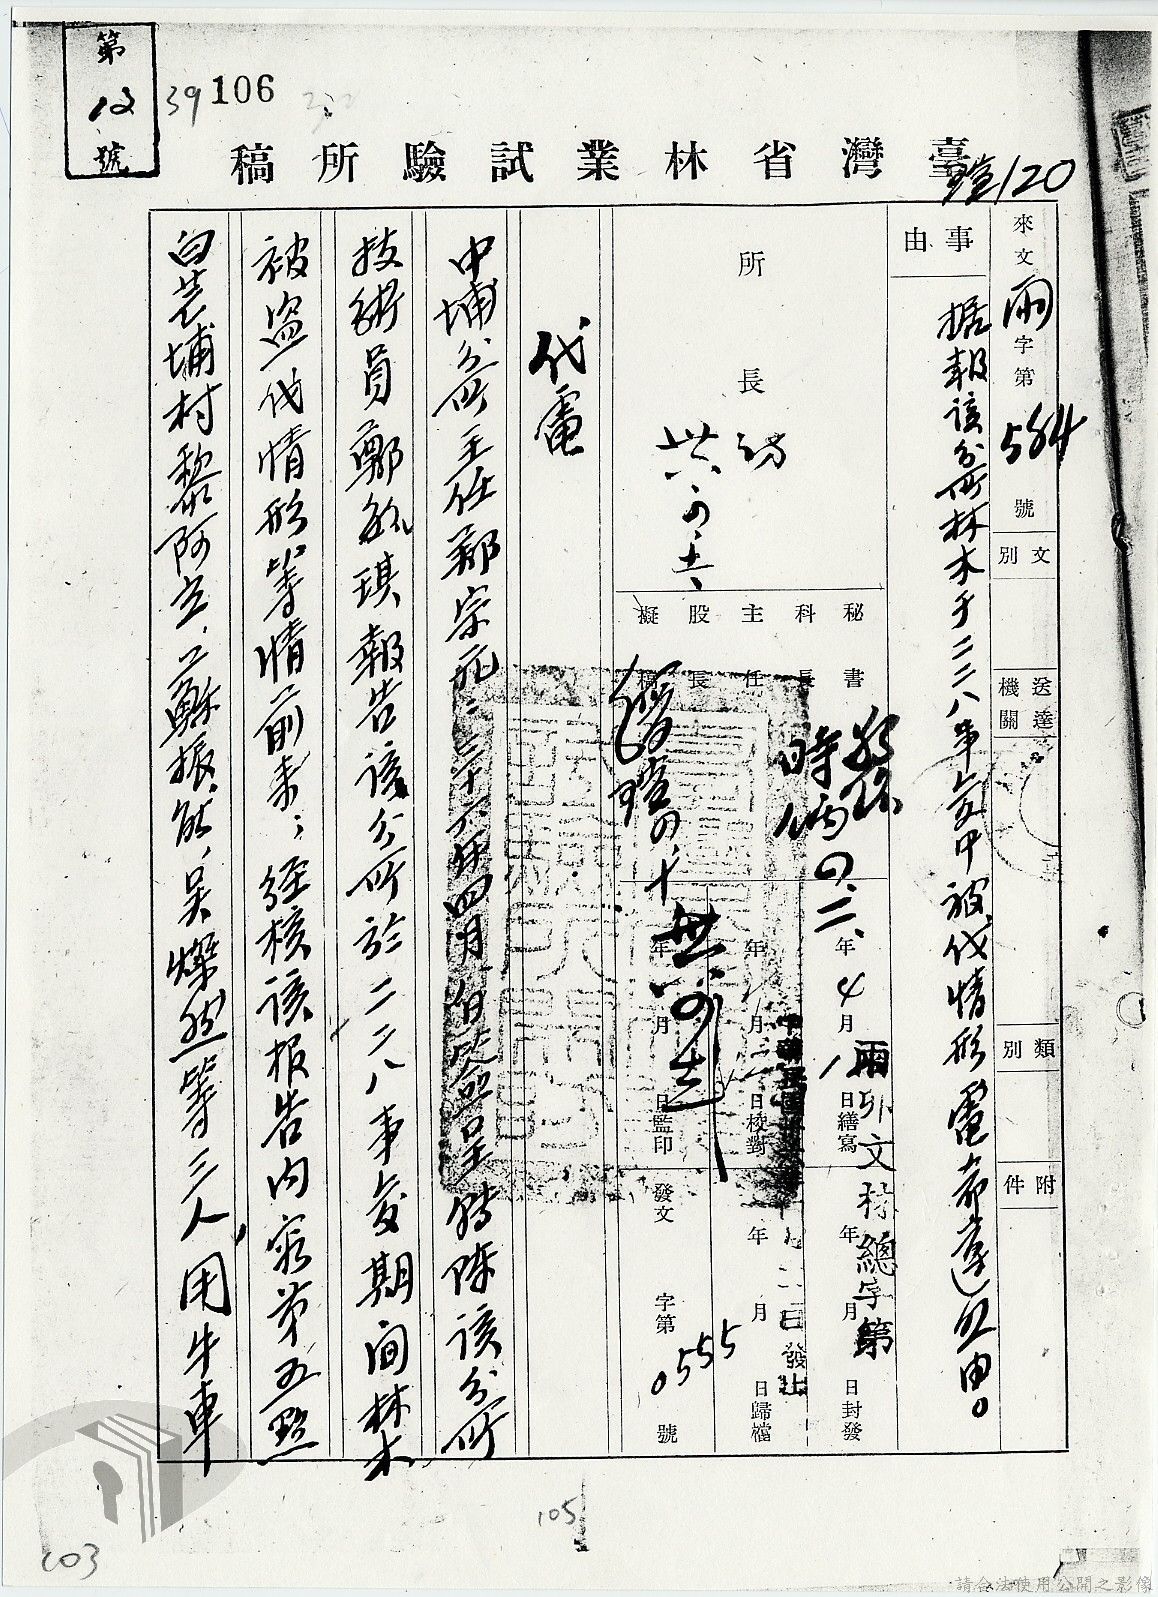 第
12
號
39
106
臺灣省林業試驗所稿
120
來文雨字第584號
文別
送達機關
類別
附件
事由
據報該分所林木于二二八事变中被伐情形電希遵照由。
所長
秘書
科長
股主任
擬稿
年4月1日繕寫
年月日校對
年月日監印
年月日封發
年月日歸檔
發文
字第0555號
林總字第
日發出
代電
中埔分所主任鄭宗元:三十六年四月 日簽呈轉陳該分所
技術員鄭 琪報告該分所於二二八事变期间林木
被盜伐情形等情前来;经核該报告内容第五點
白芒埔村黎阿立、蘇振能、吴燦然等三人用牛車
105
103
請合法使用公開之影像